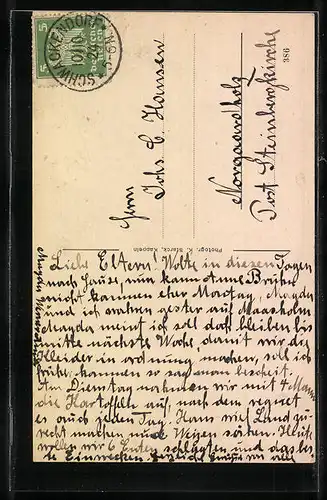 SCHWACKENDORF
10/10 24
5
386
Herrn
Johs C. Hansen
Norgaardholz
Post Steinbergkirche
Photogr. K. Starck, Kappeln
Liebe Eltern! Wollte in diesen Tagen
nach Hause, nun kann
nicht kommen eher Montag, Magda
und ich waren gester auf Maasholm
Magda meint ich soll doch bleiben bis
mitte nächste Woche, damit wir die
Kleider in ordnung machen, soll ich
früher kommen so sag man bescheit.
Am Dienstag nahmen wir mit 4 Mann
die Kartoffeln auf, nach dem regnet
es auch jeden Tag. Hans will Land zu-
recht machen und Weizen sähen. Heute
wollen wir 6 Enten schlachten und das beste
Einwecken